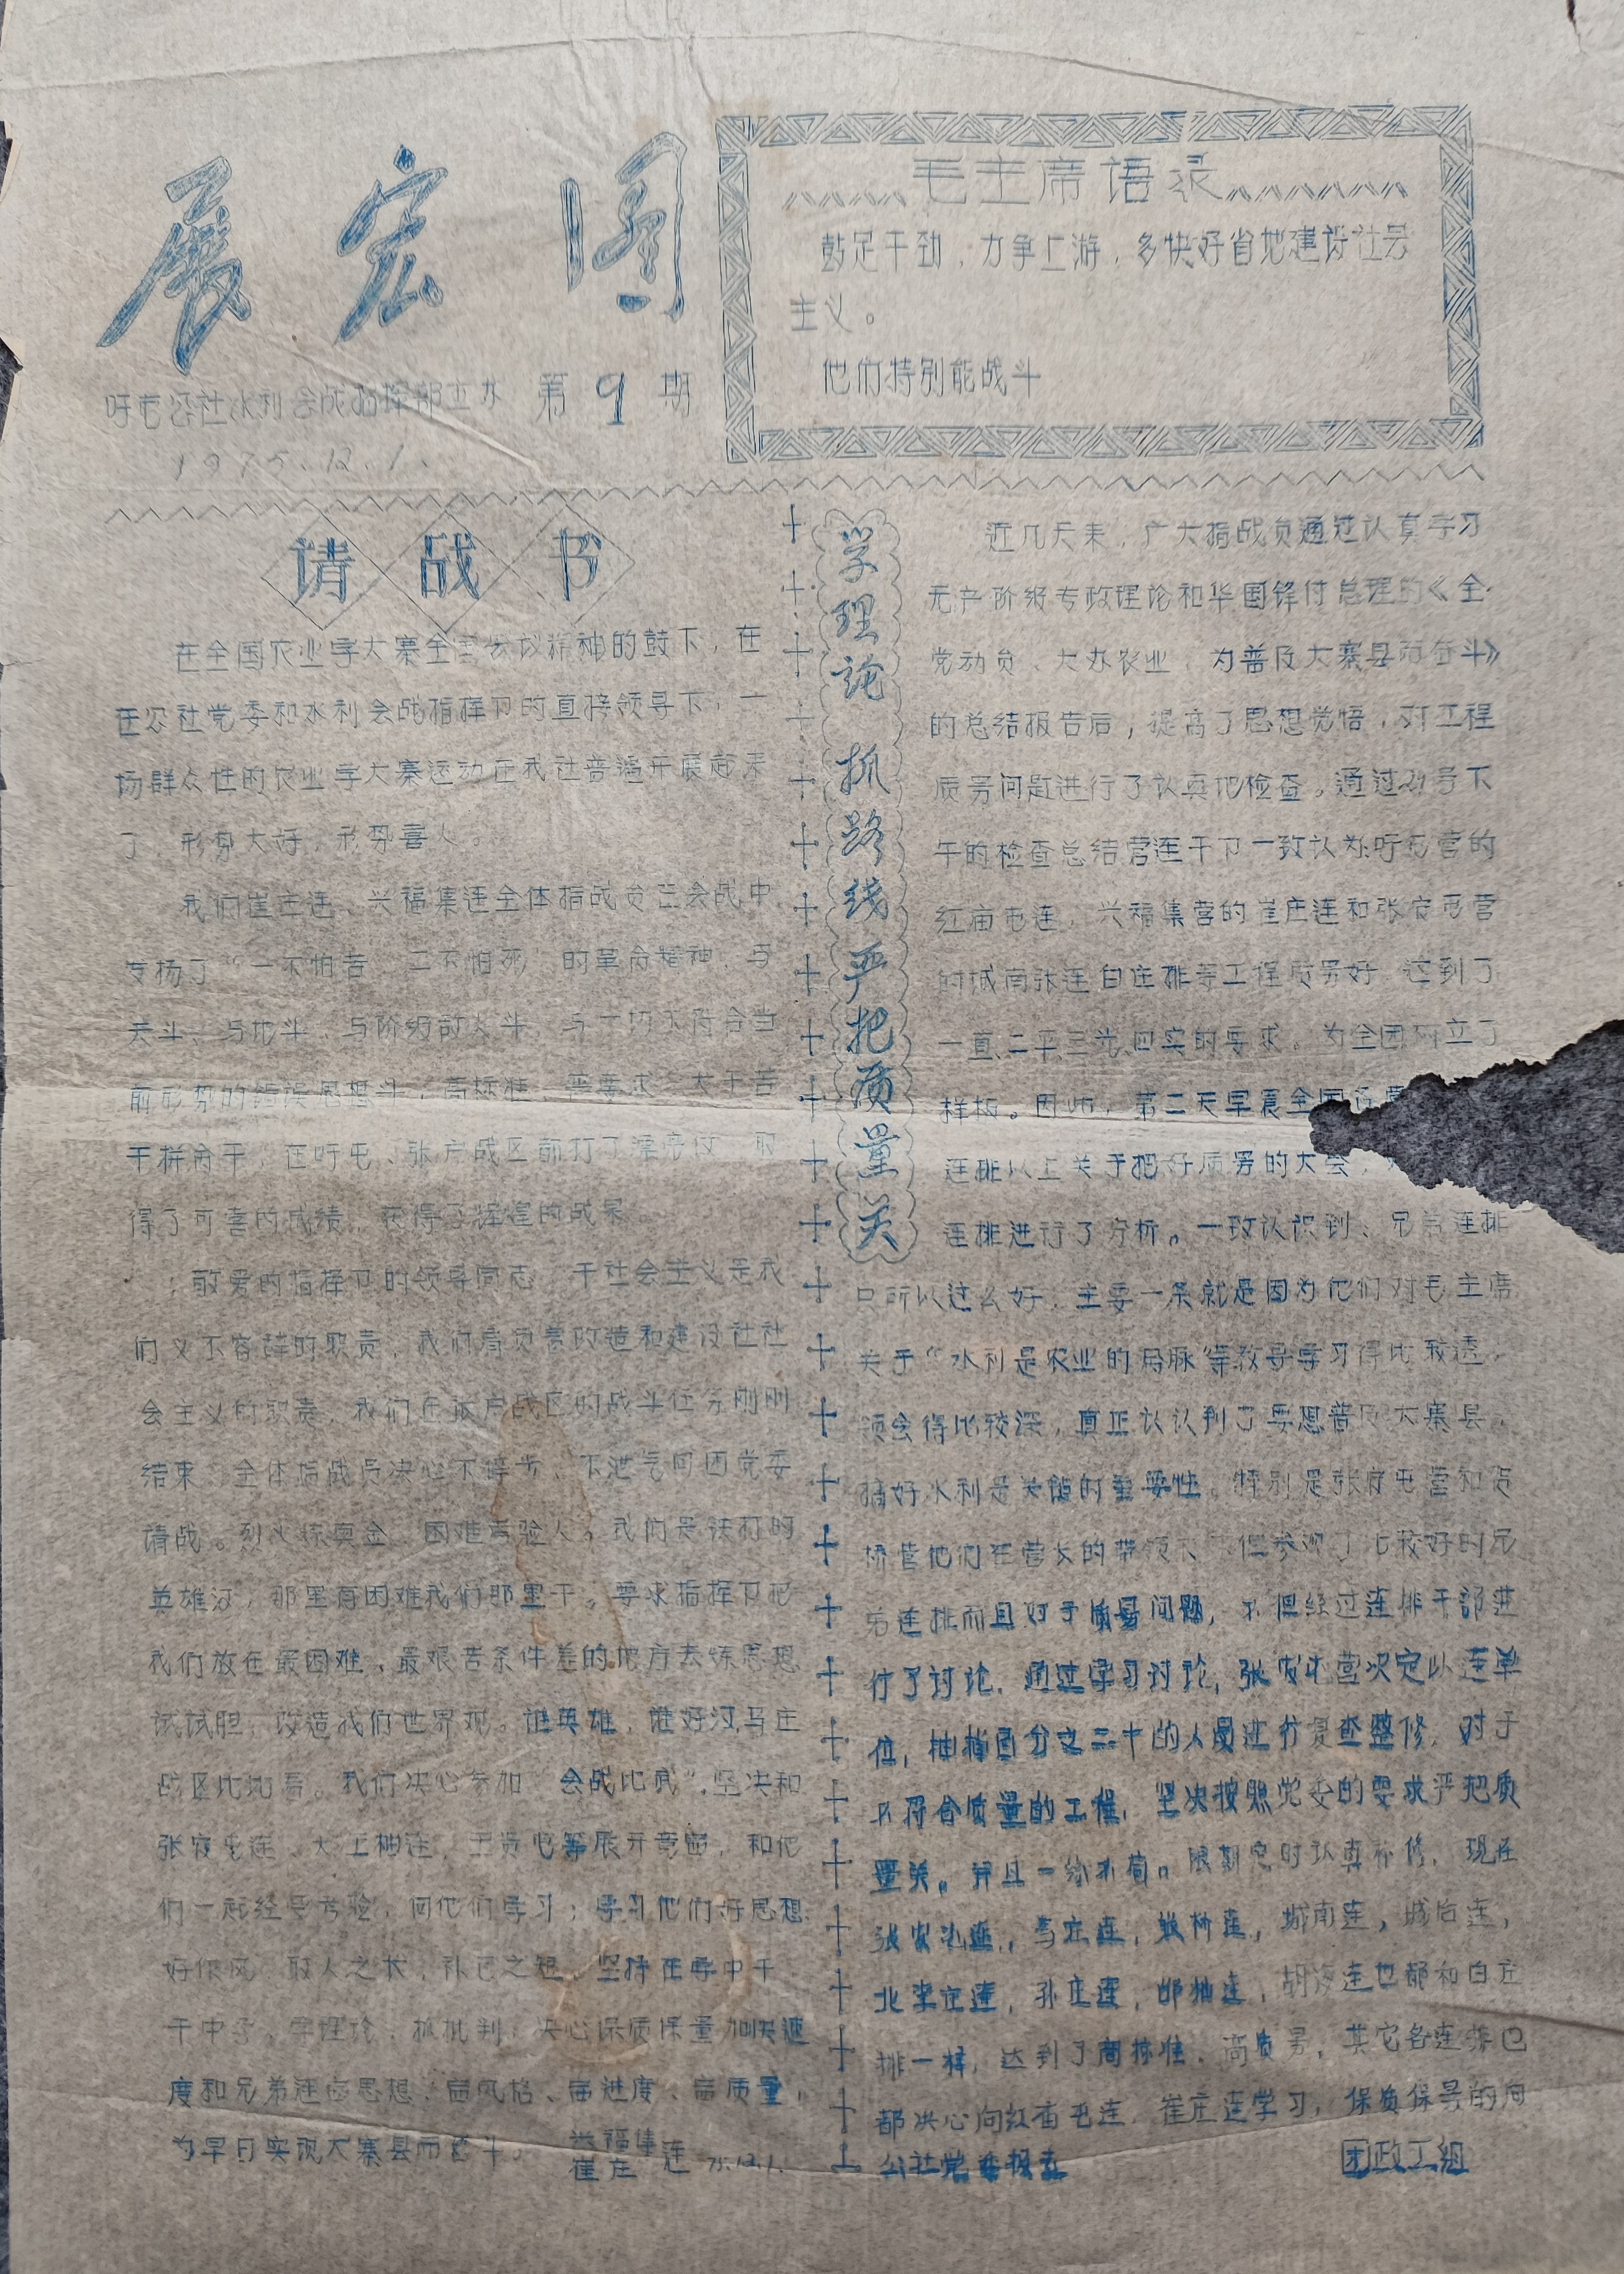 展宏图
吁屯公社水利会战指挥部主办 第9期
1975.12.1.
毛主席语录
鼓足干劲，力争上游，多快好省地建设社会
主义。
他们特别能战斗
请战书
在全国农业学大寨全国会议精神的鼓下，在
在公社党委和水利会战指挥卩的直接领导下，一
场群众性的农业学大寨运动在我社普遍开展起来
了，形势大好，形势喜人。
我们崔庄连、兴福集连全体指战员在会战中
发扬了“一不怕苦，二不怕死”的革命精神，与
天斗、与地斗、与阶级敌人斗，与一切不符合当
前形势的错误思想斗，高标准、严要求、大干苦
干拼命干，在吁屯、张户战区前打了漂亮仗，取
得了可喜的成绩，获得了辉煌的战果
敬爱的指挥卩的领导同志，干社会主义是我
们义不容辞的职责，我们肩负着改造和建设社社
会主义的职责，我们在张户战区的战斗任务刚刚
结束，全体指战员决心不停步，不泄气向团党委
请战。烈火炼真金，困难考验人。我们是铁打的
英雄汉，那里有困难我们那里干。要求指挥卩把
我们放在最困难，最艰苦条件差的地方去炼思想
试试胆，改造我们世界观。谁英雄，谁好汉马庄
战区比比高。我们决心参加“会战比武”，坚决和
张安屯连、大王神连、王贤屯等展开竞赛，和他
们一起经受考验，向他们学习；学习他们好思想
好作风，取人之长，补己之短，坚持在学中干
干中学，学理论，抓批判，决心保质保量加快速
度和兄弟连亩思想、亩风格、亩进度、亩质量，
为早日实现大寨县而奋斗。 兴福集 崔庄 连 75.12.1.
学理论 抓路线 严把质量关
近几天来，广大指战员通过认真学习
无产阶级专政理论和华国锋付总理的《全
党动员、大办农业，为普及大寨县而奋斗》
的总结报告后，提高了思想觉悟，对工程
质另问题进行了认真地检查。通过号下
午的检查总结营连干卩一致认为：吁屯营的
红庙屯连，兴福集营的崔庄连和张安屯营
的城南张连白庄排等工程质另好，达到了
一直、二平、三光、四实的要求，为全团树立了
样板。因此，第二天早晨全团
连排以上关于把好质另的大会，
连排进行了分析。一致认识到、兄弟连排
只所以这么好，主要一条就是因为他们对毛主席
关于“水利是农业的命脉”等教导学习得比较透，
领会得比较深，真正认认到了要想普及大寨县，
搞好水利是关键的重要性，特别是张安屯营和
桥营他们在营长的带领下，不但参观了比较好的兄
弟连排而且对于质量问题，不但经过连排干部进
行了讨论，通过学习讨论，张安屯营决定以连单
位，抽掉百分之二十的人员进行复查整修，对于
不符合质量的工程，坚决按照党委的要求严把质
量关。并且一丝不苟。限期定时认真补修，现在
张安屯连，马庄连，桥连，城南连，城后连，
北李庄连，孙庄连，邯抽连，胡海连也都和白庄
排一样，达到了高标准，高质另，其它各连排也
都决心向红庙屯连、崔庄连学习，保质保另的向
公社党委报喜 团政工组